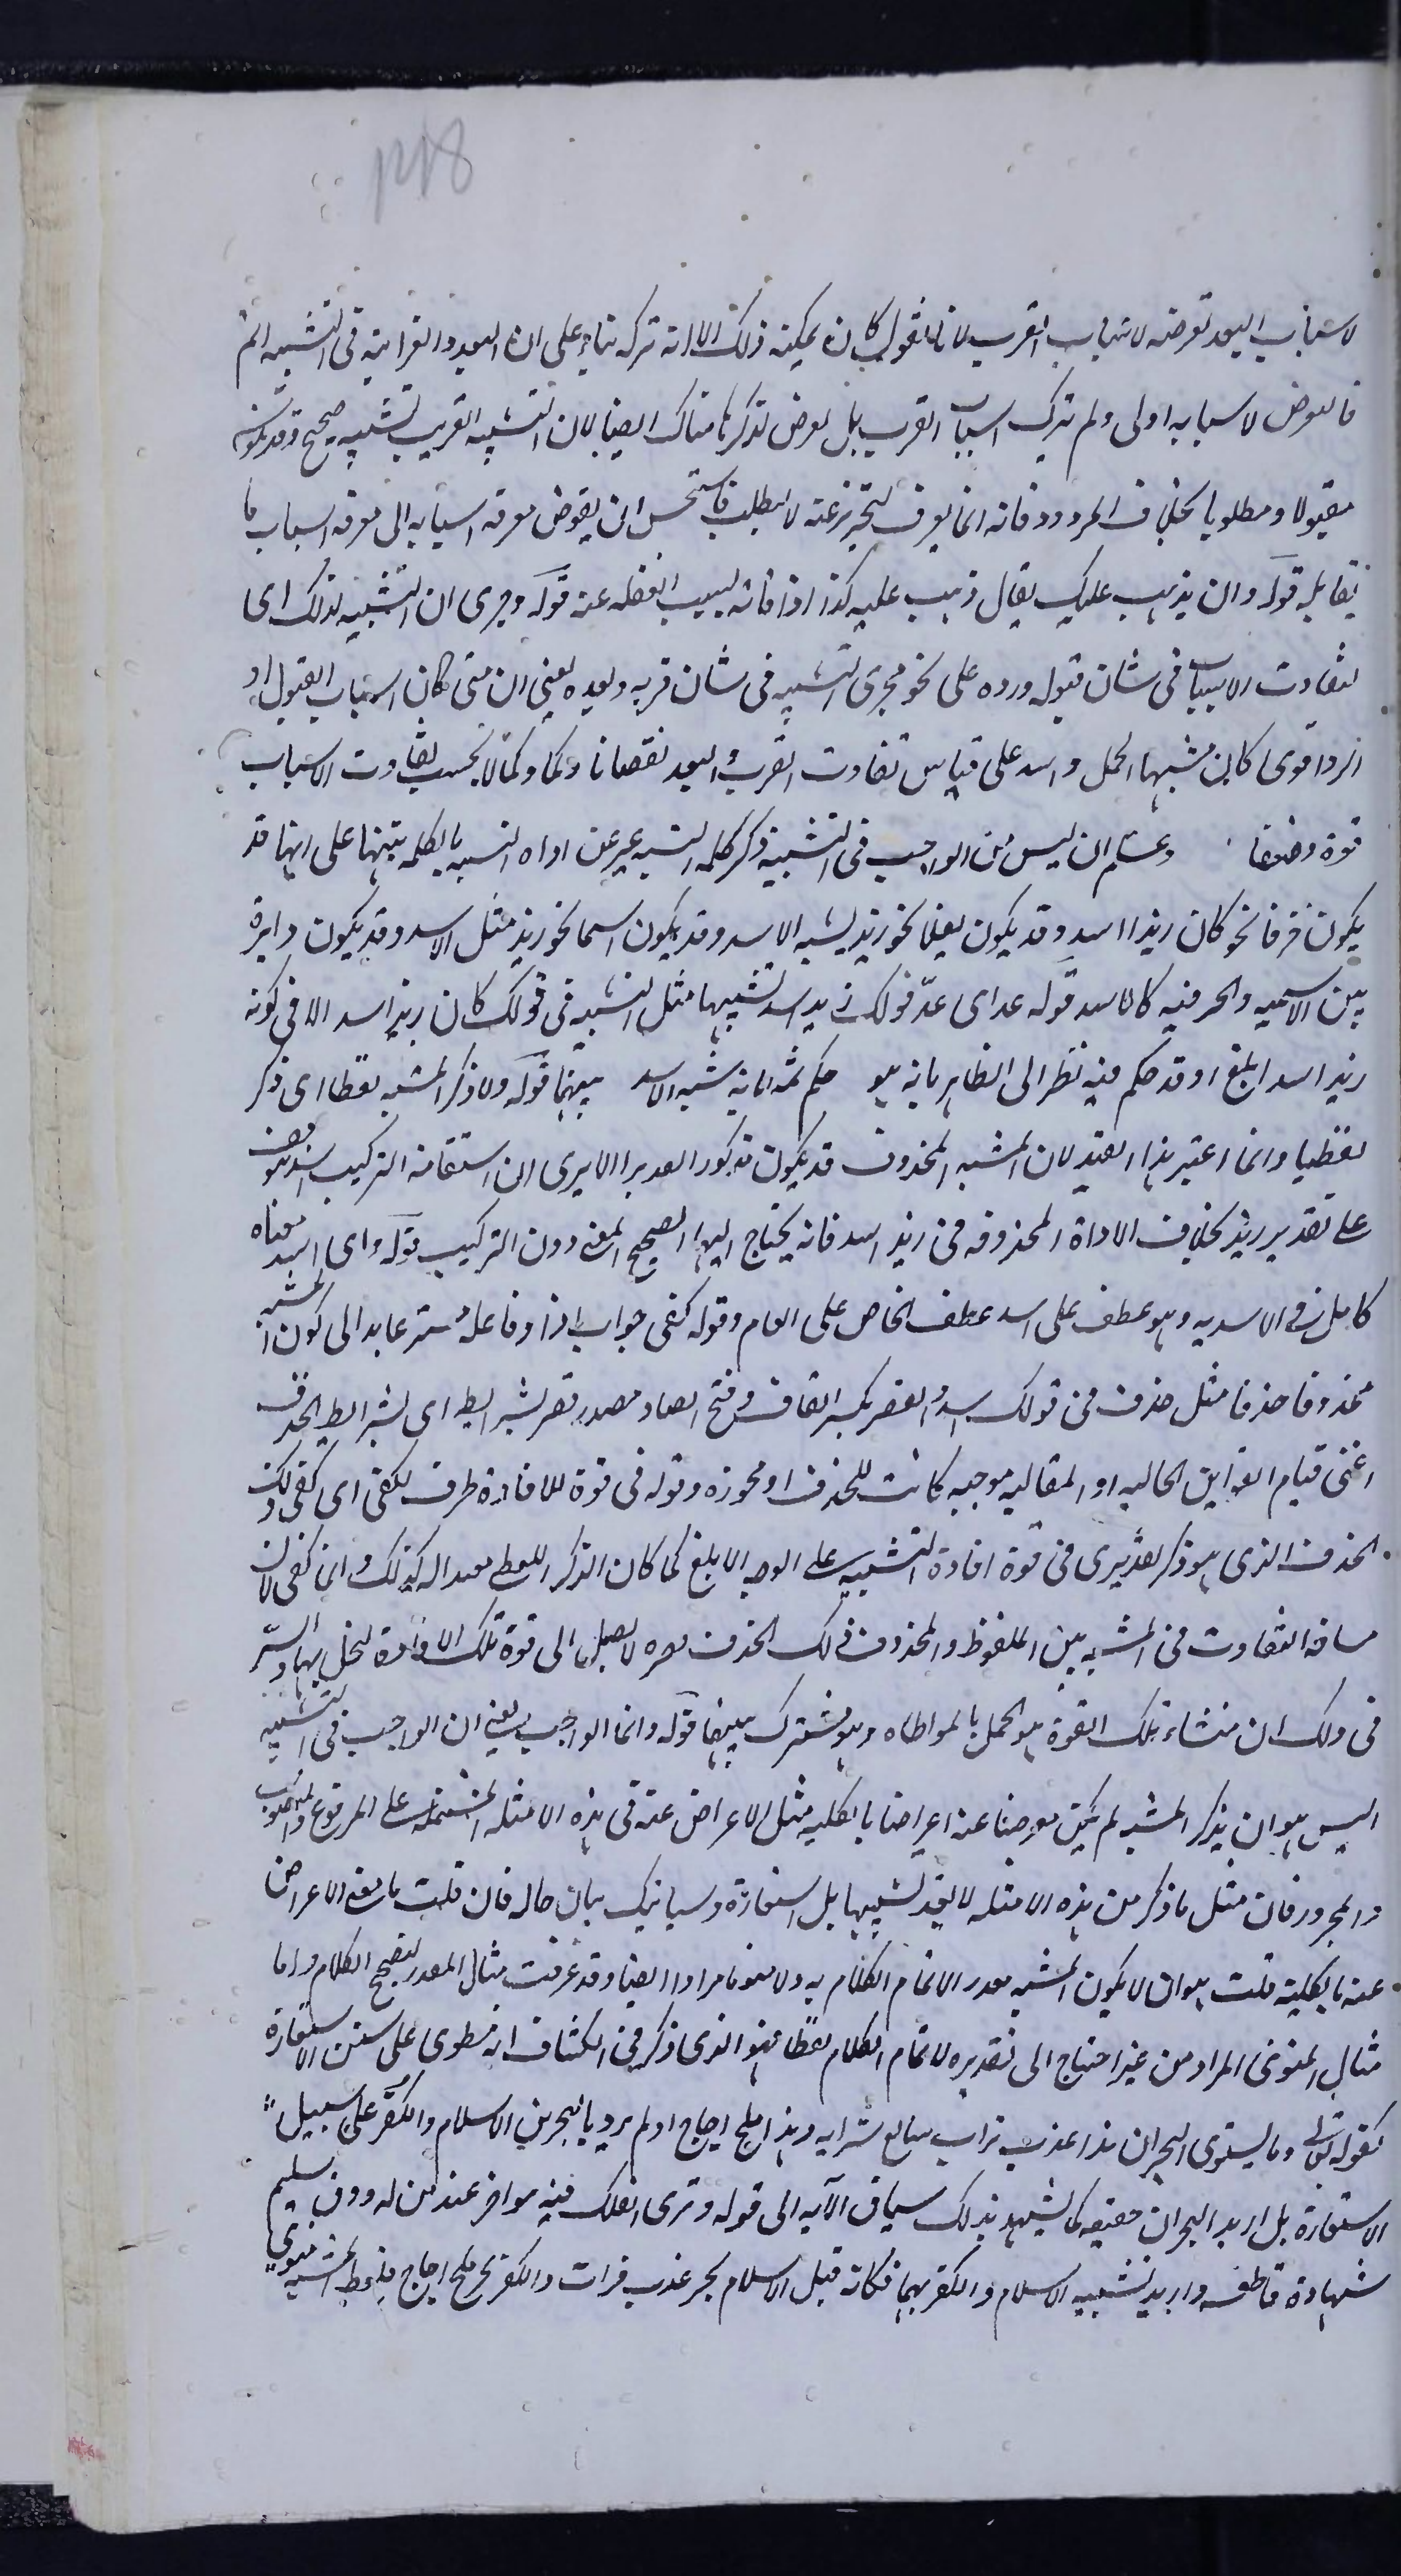 لاسباب البعد تعرضه لاسباب القرب لانا نقول كان يمكنه ذلك الا انه تركه بناء على ان البعد والغرابة فى التشبيه اتم
فالتعرض لاسبابه اولى ولم يترك اسباب القرب بل تعرض لذكرها هناك ايضا لان التشبيه القريب تشبيه صحيح وقد يكون
مقبولا ومطلوبا بخلاف المردود فانه انما يعرف ليتحرز عنه لا ليطلب فاستحسن ان يفوض معرفة اسبابه الى معرفة اسباب ما
يقابله قوله وان يذهب عليك يقال ذهب عليه كذا اذا فاته بسبب الغفلة عنه قوله ومجرى ان التشبيه لذلك اى
لتفاوت الاسباب فى شان قبوله ورده على نحو مجرى التشبيه فى شان قربه وبعده يعنى ان متى كان اسباب القبول او
الرد اقوى كان تشبيها اكمل واسد على قياس تفاوت القرب والبعد نقصانا وكمالا بحسب تفاوت الاسباب
قوة وضعفا واعلم ان ليس من الواجب فى التشبيه ذكر كلمة التشبيه عبر عن اداة التشبيه بالكلمة تنبيها على انها قد
يكون حرفا نحو كان زيدا اسد وقد يكون فعلا نحو زيد يشبه الاسد وقد يكون اسما نحو زيد مثل الاسد وقد يكون دايرة
بين الاسمية والحرفية كالاسد قوله عد اى عدّ قولك زيد اسد تشبيها مثل التشبيه فى قولك كان زيدا اسد الا فى كونه
زيد اسد ابلغ اذ قد حكم فيه نظرا الى الظاهر بانه هو حكم ثمه بانه شبه الاسد بينهما قوله ولا ذكر المشبه لفظا اى ذكر
لفظيا وانما اعتبر هذا القيد لان المشبه المحذوف قد يكون مذكورا تقديرا الا يرى ان استقامة التركيب اسد موقوف
على تقدير زيد بخلاف الاداة المحذوفة فى زيد اسد فانه يحتاج اليها لصحيح المعنى دون التركيب قوله واى اسد معناه
كامل فى الاسدية وهو عطف على اسد عطف الخاص على العام وقوله كفى جواب اذا وفاعله مستتر عايد الى كون المشبه
محذوفا حذفا مثل حذف فى قولك اسد والقصر بكسر القاف وفتح الصاد مصدر قصر بشرايط اى بشرايط الحذف
اعنى قيام القراين الحالية او المقالية موجبة كانت للحذف او مجوزة وقوله فى قوة للافادة ظرف لكفى اى كفى ذلك
الحذف الذى هو ذكر تقديرى فى قوة افادة التشبيه على الوجه الابلغ كما كان الذكر اللفظى كذلك وانما كفى لان
مسافة التفاوت فى المشبه بين الملفوظ والمحذوف ذلك الحذف لا يصل الى قوة تلك الافادة ليخل بها والسر
فى ذلك ان منشاء تلك القوة هو الحمل بالمواطاة وهو مشترك بينهما قوله وانما الواجب يعنى ان الواجب فى التشبيه
ليس هو ان يذكر المشبه لم يكن معرضا عنه اعراضا بالكلية مثل الاعراض عنه فى هذه الامثلة المشتملة على المرفوع والمنصوب
والمجرور فان مثل ما ذكر من هذه الامثلة لا يعد تشبيها بل استعارة وسياتيك بيان حاله فان قلت ما معنى الاعراض
عنه بالكلية قلت هو ان لا يكون المشبه مقدرا لاتمام الكلام به ولا منويا مرادا ايضا وقد عرفت مثال المقدر لتصحيح الكلام واما
مثال المنوى المراد من غير احتياج الى تقديره لاتمام الكلام لفظا فهو الذى ذكره فى الكشاف انه مطوى على سنن الاستعارة
كقوله تعالى وما يستوى البحران هذا عذب فرات سايغ شرابه وهذا ملح اجاج اذ لم يرد بالبحرين الاسلام والكفر على سبيل
الاستعارة بل اريد البحران حقيقة كما يشهد بذلك سياق الآية الى قوله وترى الفلك فيه مواخر عند من له ذوق سليم
شهادة قاطعة واريد تشبيه الاسلام والكفر بهما فكانه قيل الاسلام بحر عذب فرات والكفر بحر ملح اجاج فلفظ المشبه منوى